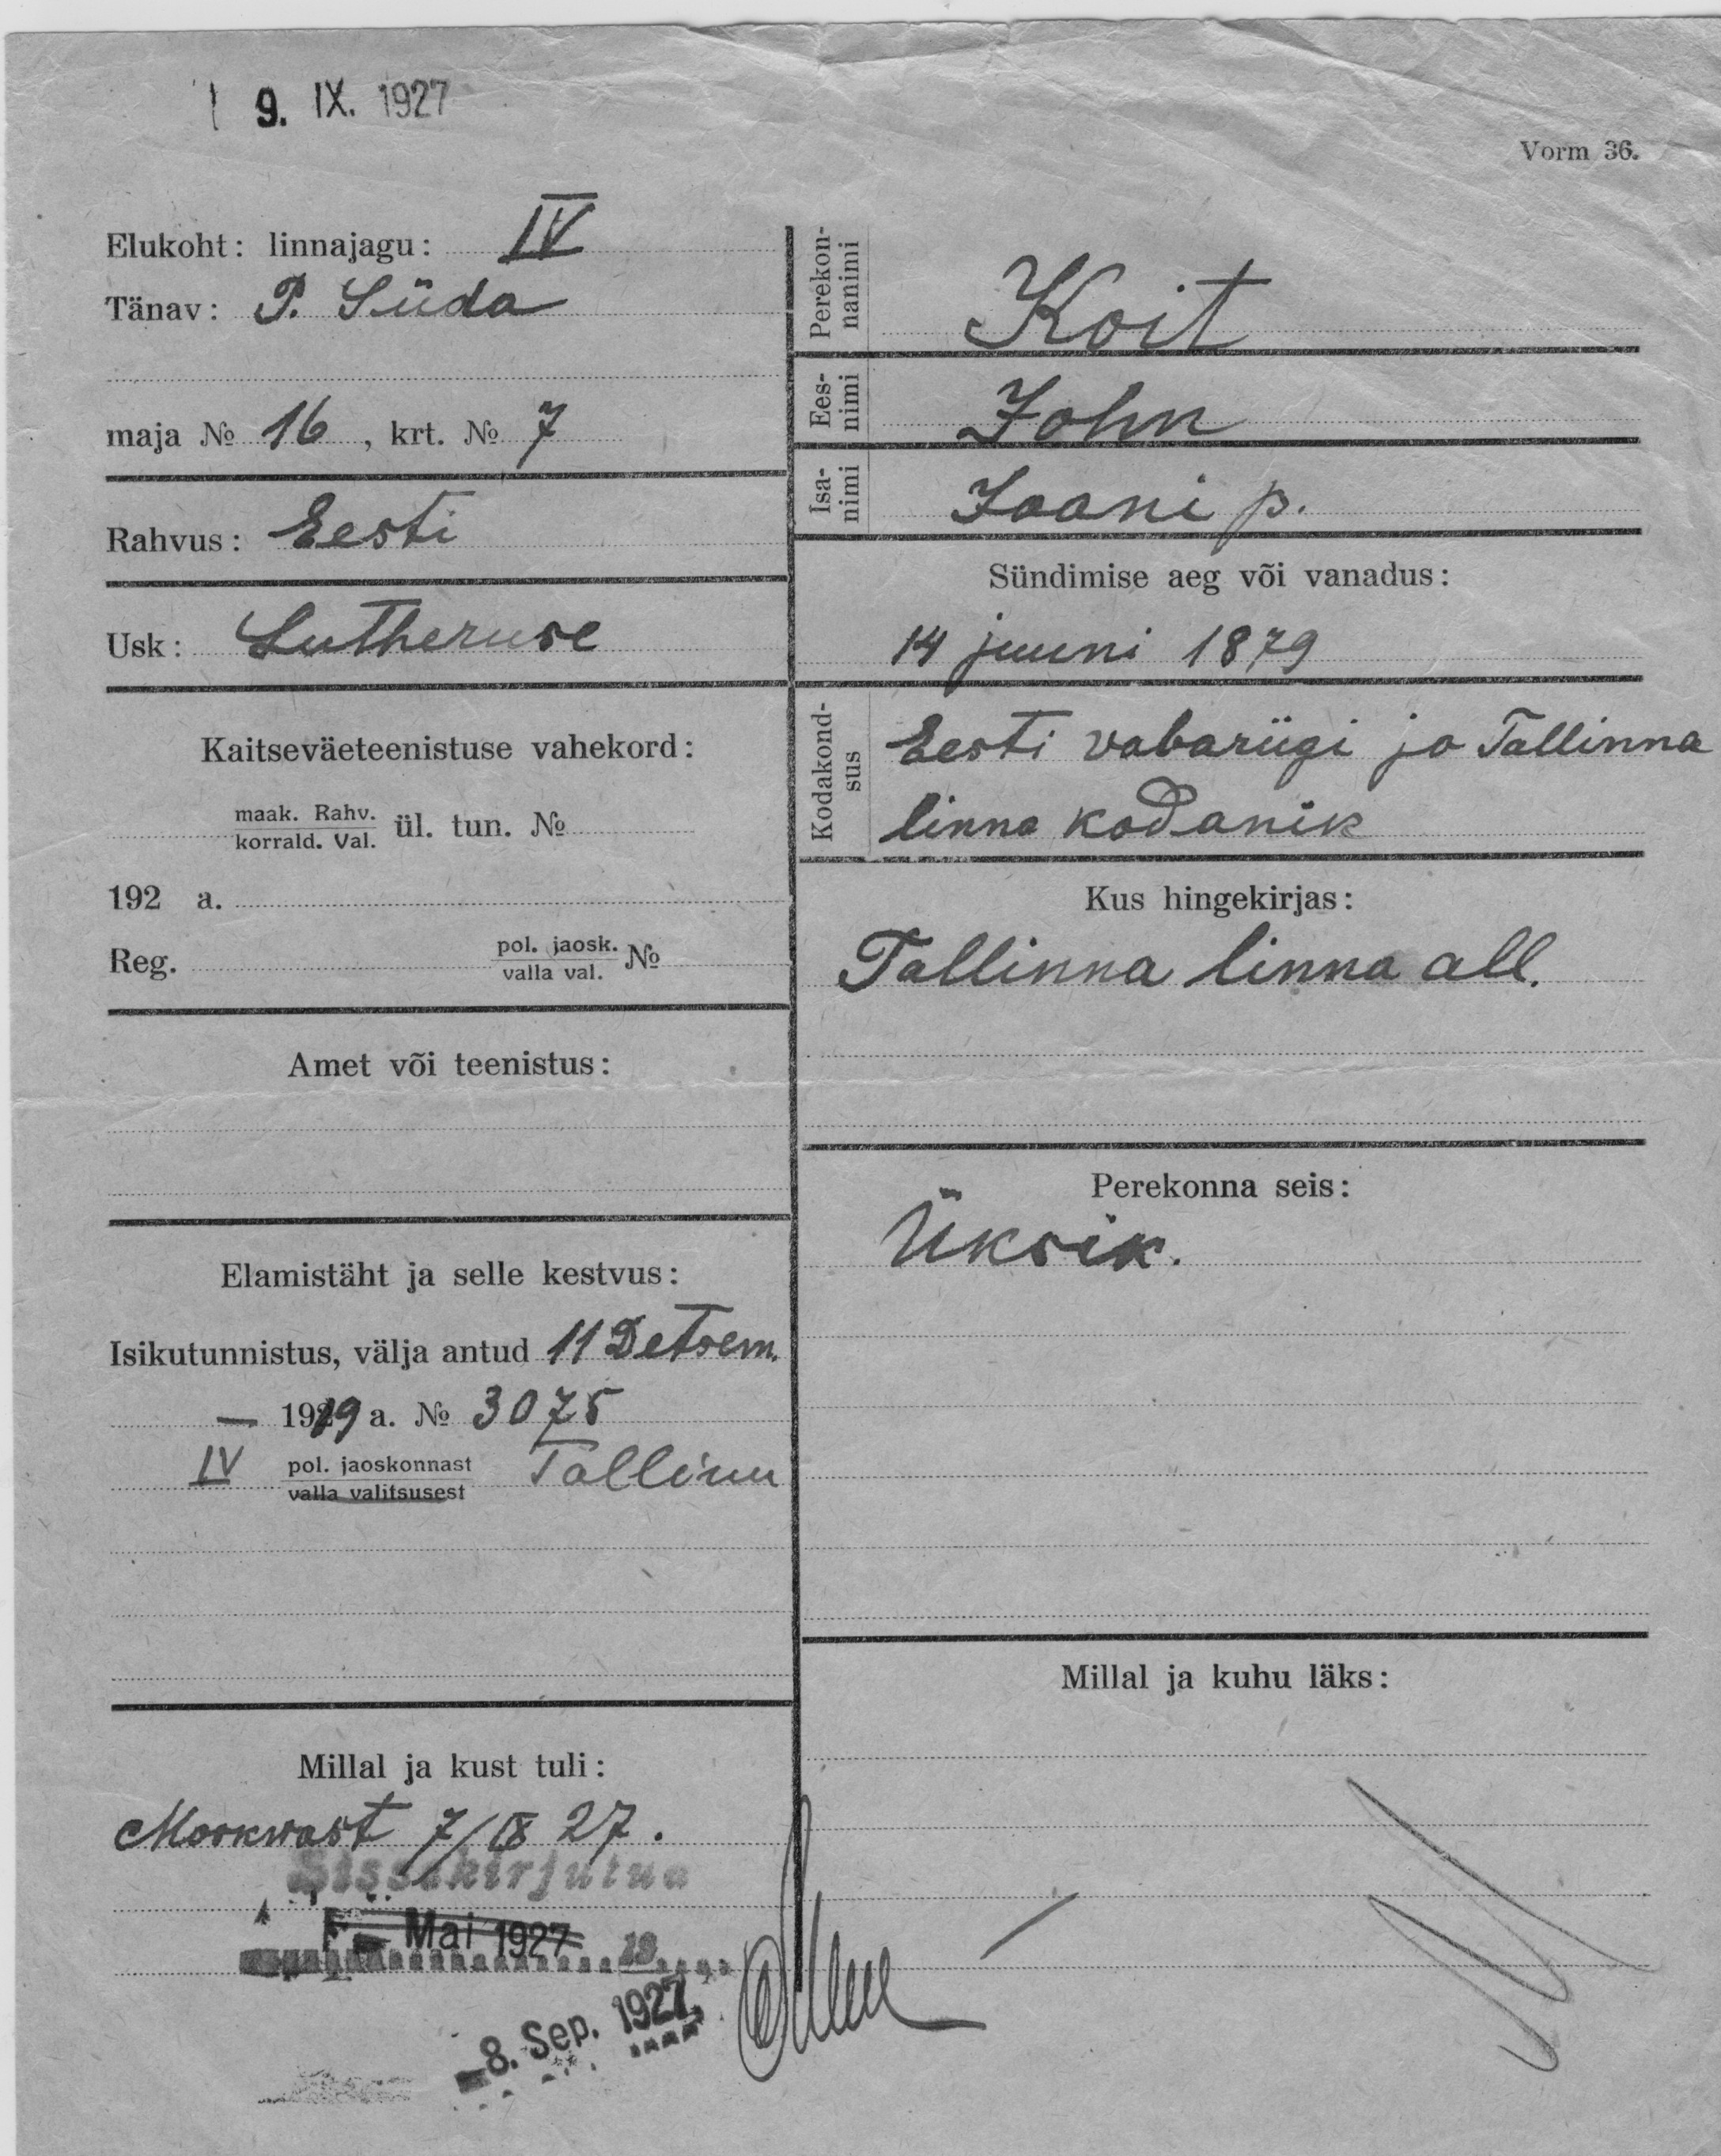 9. IX. 1927
Vorm 36.
Elukoht: linnajagu: IV
Tänav: P. Süda
maja № 16, krt. № 7
Rahvus: Eesti
Usk: Lutheruse
Kaitseväeteenistuse vahekord:
maak. Rahv.
korrald. Val. ül. tun. №
192 a.
Reg. pol. jaosk. №
valla val.
Amet või teenistus:
Elamistäht ja selle kestvus:
Isikutunnistus, välja antud 11 Detsem.
— 1919 a. № 3075
IV pol. jaoskonnast Tallinn
valla valitsusest
Millal ja kust tuli:
Moskwast 7/IX 27.
Sissekirjutud
Mai 1927
19
8. Sep. 1927
Perekon-
nanimi Koit
Ees-
nimi John
Isa-
nimi Jaani p.
Sündimise aeg või vanadus:
14 juuni 1879
Kodakond-
sus
Eesti vabariigi ja Tallinna
linna kodanik
Kus hingekirjas:
Tallinna linna all.
Perekonna seis:
Üksik.
Millal ja kuhu läks: